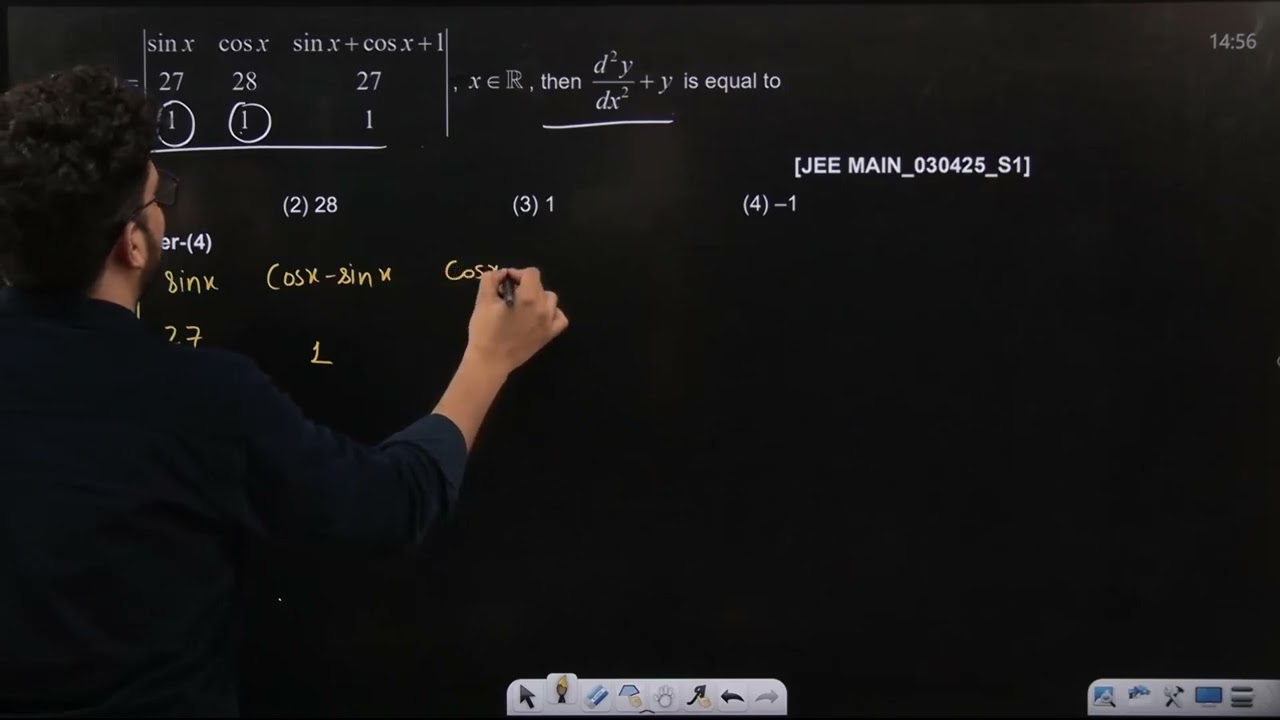 14:56
sin x cos x sin x + cos x + 1
= 27 28 27 , x ∈ ℝ, then d²y/dx² + y is equal to
1 1 1
[JEE MAIN_030425_S1]
(2) 28 (3) 1 (4) –1
er-(4)
sin x Cos x - sin x Cos x
27 1